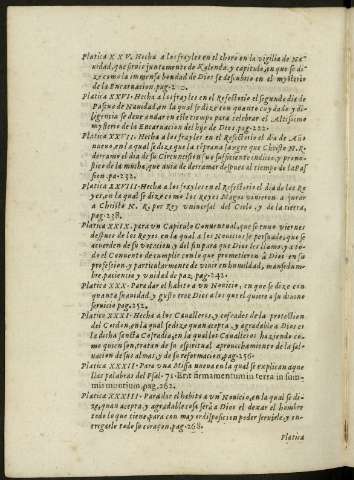 Platica XXV. Hecha a los frayles en el choro en la vigilia de Na-
uidad, que siruio juntamente de Kalenda, y capitulo, en que se di-
ze como la immensa bondad de Dios se descubrio en el mysterio
de la Encarnacion. pag.
Platica XXVI. Hecha a los frayles en el Refectorio el segundo dia de
Pascua de Nauidad, en la qual se dize con quanto cuydado y di-
ligencia se deue andar en este tiempo para celebrar el Altissimo
mysterio de la Encarnacion del hijo de Dios. pag. 222.
Platica XXVII. Hecha a los frayles en el Refectorio el dia de Año
nueuo, en la qual se dize, que la temprana sangre que Christo N. R.
derramo el dia de su Circuncision fue suficiente indicio, y prono-
stico de la mucha, que auia de derramar despues al tiempo de la Pas-
sion. pa. 232.
Platica XXVIII. Hecha a los frayles en el Refectorio el dia de los Re
yes, en la qual se dize como los Reyes Magos vinieron a jurar
a Christo N. R. por Rey vniuersal del Cielo, y de la tierra,
pag. 238.
Platica XXIX. para vn Capitulo Conuentual, que se tuuo viernes
despues de los Reyes en la qual a los Nouicios se persuade, que se
acuerden de su vocacion, y del fin para que Dios les llamo, y a to-
do el Conuento de cumplir con lo que prometieron a Dios en su
profesion, y particularmente de viuir en humildad, mansedum-
bre, paciencia y vnidad de paz. pag. 242.
Platica XXX. Para dar el habito a vn Nouicio, en que se dize con
quanta suauidad, y gusto trae Dios a los que el quiere a su diuino
seruicio pag. 252.
Platica XXXI. Hecha a los Caualleros, y cofrades de la protection
del Cordon, en la qual se dize quan acepta, y agradable a Dios es
la dicha sancta Cofradia, en la qual los Caualleros haziendo co-
mo quien son, tratan de su espiritual aprouechamiento de la sal-
uacion de sus almas, y de su reformacion, pag. 256.
Platica XXXII. Para vna Missa nueua en la qual se explican aque
llas palabras del Psal. 71. Erit firmamentum in terra in sum-
mis montium, pag. 262.
Platica XXXIII. Para dar el habito a vn Nouicio, en la qual se di-
ze, quan acepta, y agradable cosa sera a Dios el dexar el hombre
todo lo que tiene, para con mayor disposicion poder seruirle, y en-
tregarle todo su coraçon, pag. 268.
Platica